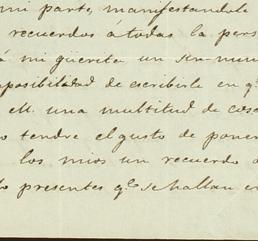 mi parte, manifestandole
recuerdos á todas la pers
á mi güerita un sin num
posibilidad de escribirle en q.
M. una multitud de cosa
o tendre el gusto de poner
los mios un recuerdo a
lo presentes q.e se hallan en